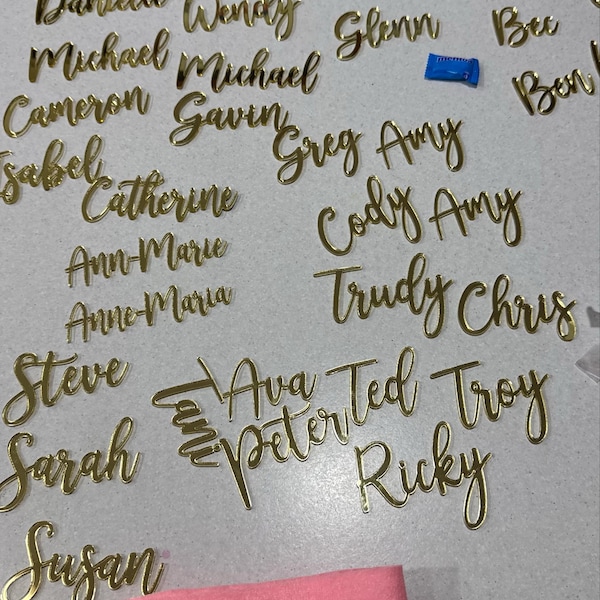 Danielle
Wendy
Glenn
Bee
Michael
Michael
Ben
Cameron
Gavin
Greg
Amy
Isabel
Catherine
Cody
Amy
Ann-Marie
Anne-Maria
Trudy
Chris
Steve
Tani
Ava
Ted
Troy
Peter
Ricky
Sarah
Susan